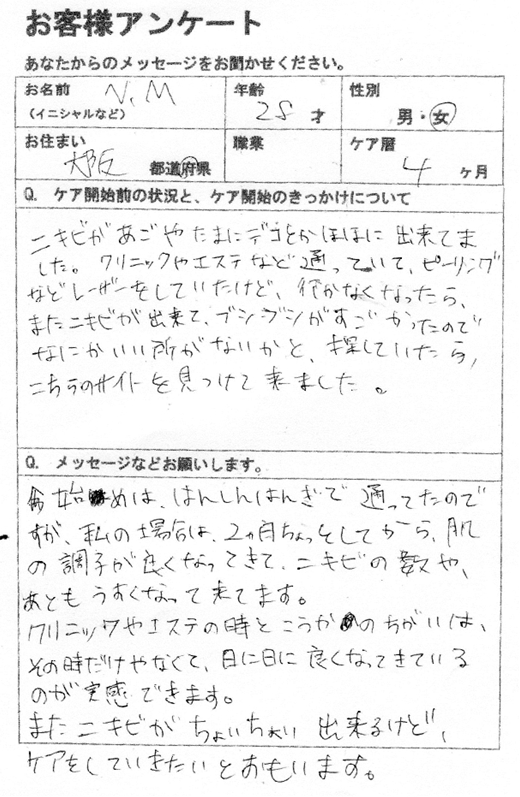 お客様アンケート
あなたからのメッセージをお聞かせください。
お名前 N.M
(イニシャルなど)
年齢 28才
性別 男・女
お住まい 大阪 都道府県
職業
ケア暦 4ヶ月
Q. ケア開始前の状況と、ケア開始のきっかけについて
ニキビがあごやたまにデコとかほほに出来てま
した。クリニックやエステなど通っていて、ピーリング
などレーザーをしていたけど、行かなくなったら、
またニキビが出来て、ブツブツがすごかったので
なにかいい所がないかと、探していたら、
こちらのサイトを見つけて来ました。
Q. メッセージなどお願いします。
始めは、はんしんはんぎで通ってたので
すが、私の場合は、2ヵ月ちょっとしてから、肌
の調子が良くなってきて、ニキビの数や、
あともうすくなって来てます。
クリニックやエステの時とこうかのちがいは、
その時だけやなくて、日に日に良くなってきている
のが実感できます。
またニキビがちょいちょい出来るけど、
ケアをしていきたいとおもいます。